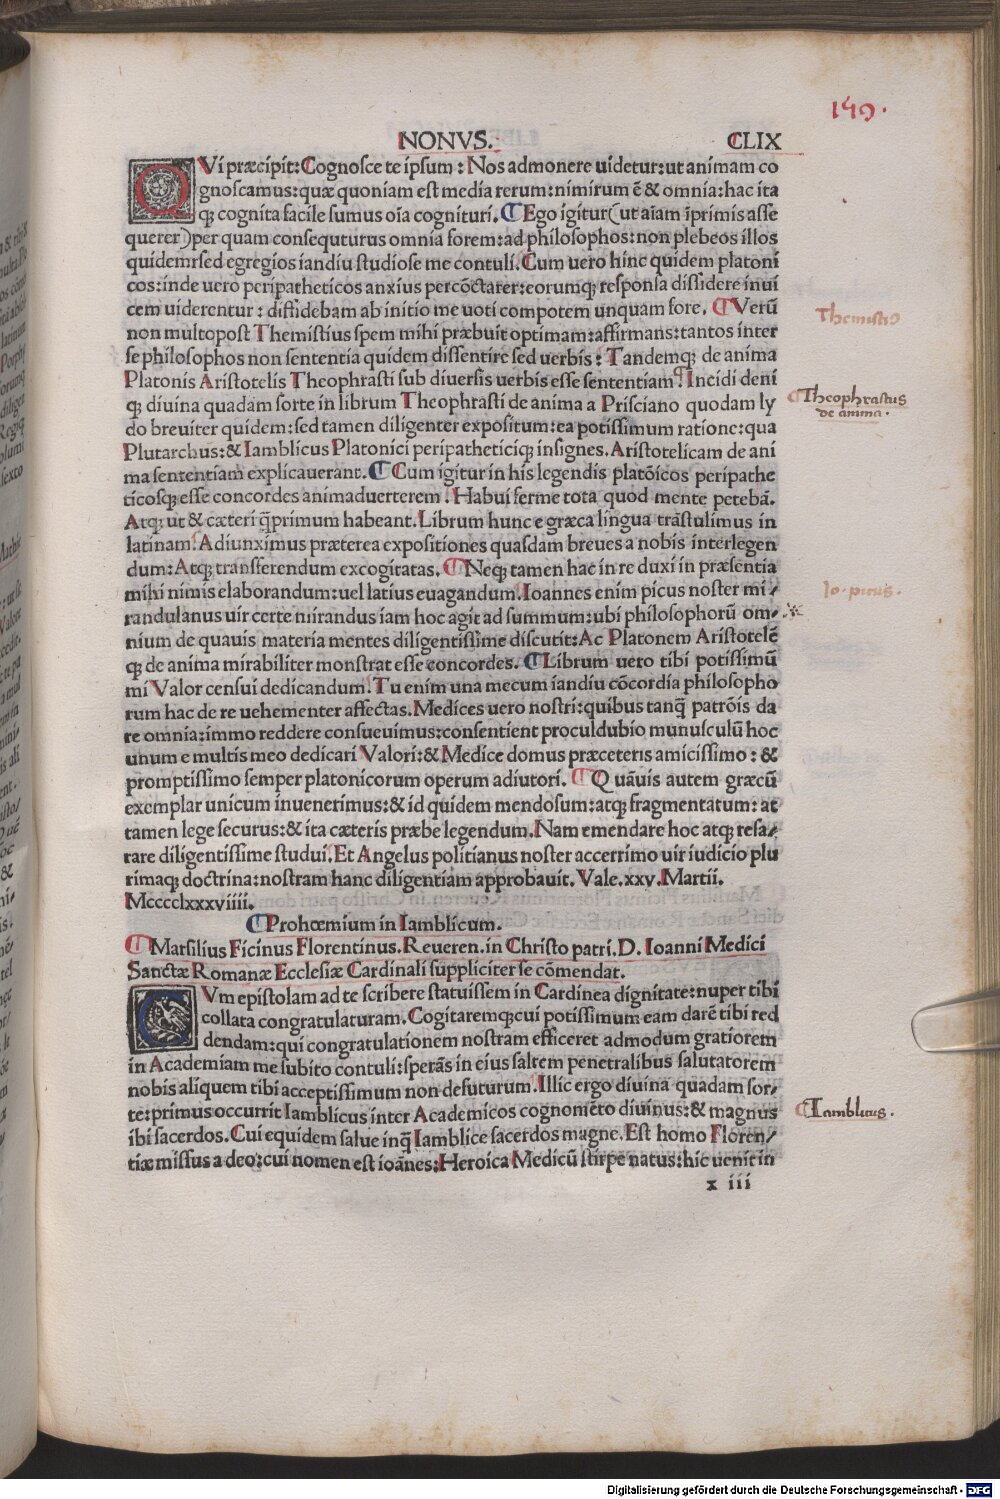 149.
NONVS. CLIX
QVi præcipit: Cognosce te ipsum: Nos admonere uidetur: ut animam co
gnoscamus: quæ quoniam est media rerum: nimirum ē & omnia: hac ita
qꝫ cognita facile sumus oīa cognituri. Ego igitur (ut aīam īprimis asse
querer) per quam consequturus omnia forem: ad philosophos: non plebeos illos
quidem: sed egregios iandiu studiose me contuli. Cum uero hinc quidem platoni
cos: inde uero peripatheticos anxius percōctarer: eorumqꝫ responsa dissidere inui
cem uiderentur: diffidebam ab initio me uoti compotem unquam fore. Verū
non multopost Themistius spem mihi præbuit optimam: affirmans: tantos inter
se philosophos non sententia quidem dissentire sed uerbis: Tandemqꝫ de anima
Platonis Aristotelis Theophrasti sub diuersis uerbis esse sententiam. Incidi deni
qꝫ diuina quadam sorte in librum Theophrasti de anima a Prisciano quodam ly
do breuiter quidem: sed tamen diligenter expositum: ea potissimum ratione: qua
Plutarchus: & Iamblicus Platonici peripatheticiqꝫ insignes. Aristotelicam de ani
ma sententiam explicauerant. Cum igitur in his legendis platōicos peripathe
ticosqꝫ esse concordes animaduerterem. Habui ferme tota quod mente petebā.
Atqꝫ ut & cæteri q̄primum habeant. Librum hunc e græca lingua trāstulimus in
latinam. Adiunximus præterea expositiones quasdam breues a nobis interlegen
dum: Atqꝫ transferendum excogitatas. Neqꝫ tamen hac in re duxi in præsentia
mihi nimis elaborandum: uel latius euagandum. Ioannes enim picus noster mi/
randulanus uir certe mirandus iam hoc agit ad summum: ubi philosophorū om/
nium de quauis materia mentes diligentissime discutit: Ac Platonem Aristotelē
qꝫ de anima mirabiliter monstrat esse concordes. Librum uero tibi potissimū
mi Valor censui dedicandum. Tu enim una mecum iandiu cōcordia philosopho
rum hac de re uehementer affectas. Medices uero nostri: quibus tanq̄ patrōis da
re omnia: immo reddere consueuimus: consentient proculdubio munusculū hoc
unum e multis meo dedicari Valori: & Medice domus præceteris amicissimo: &
promptissimo semper platonicorum operum adiutori. Quāuis autem græcū
exemplar unicum inuenerimus: & id quidem mendosum: atqꝫ fragmentatum: at
tamen lege securus: & ita cæteris præbe legendum. Nam emendare hoc atqꝫ resa/
rare diligentissime studui. Et Angelus politianus noster accerrimo uir iudicio plu
rimaqꝫ doctrina: nostram hanc diligentiam approbauit. Vale. xxv. Martii.
Mcccclxxxviiii.
Prohœmium in Iamblicum.
Marsilius Ficinus Florentinus. Reueren. in Christo patri. D. Ioanni Medici
Sanctæ Romanæ Ecclesiæ Cardinali suppliciter se cōmendat.
CVm epistolam ad te scribere statuissem in Cardinea dignitate: nuper tibi
collata congratulaturam. Cogitaremqꝫ cui potissimum eam darē tibi red
dendam: qui congratulationem nostram efficeret admodum gratiorem
in Academiam me subito contuli: sperās in eius saltem penetralibus salutatorem
nobis aliquem tibi acceptissimum non defuturum. Illic ergo diuina quadam sor/
te: primus occurrit Iamblicus inter Academicos cognomēto diuinus: & magnus
ibi sacerdos. Cui equidem salue inq̄ Iamblice sacerdos magne. Est homo Floren/
tiæ missus a deo: cui nomen est ioānes: Heroica Medicū stirpe natus: hic uenit in
x iii
Themistio
Theophrastus
de anima.
Io. picus.
Iamblicus.
Digitalisierung gefördert durch die Deutsche Forschungsgemeinschaft - DFG